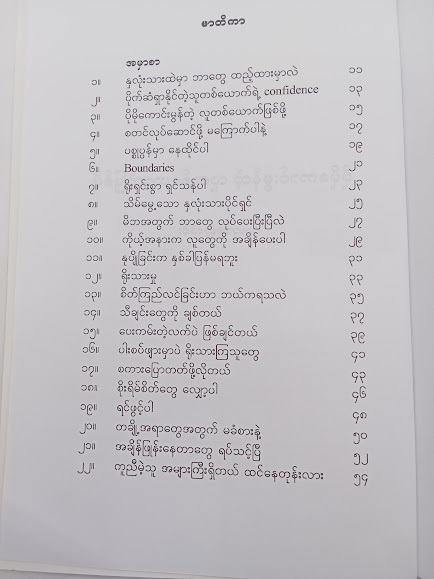 မာတိကာ
အမှာစာ
၁။ နှလုံးသားထဲမှာ ဘာတွေ ထည့်ထားမှာလဲ ၁၁
၂။ ပိုက်ဆံရှာနိုင်တဲ့သူတစ်ယောက်ရဲ့ confidence ၁၃
၃။ ပိုမိုကောင်းမွန်တဲ့ လူတစ်ယောက်ဖြစ်ဖို့ ၁၅
၄။ စတင်လုပ်ဆောင်ဖို့ မကြောက်ပါနဲ့ ၁၇
၅။ ပစ္စုပ္ပန်မှာ နေထိုင်ပါ ၁၉
၆။ Boundaries ၂၁
၇။ ရိုးရှင်းစွာ ရှင်သန်ပါ ၂၃
၈။ သိမ်မွေ့သော နှလုံးသားပိုင်ရှင် ၂၅
၉။ မိဘအတွက် ဘာတွေ လုပ်ပေးပြီးပြီလဲ ၂၇
၁၀။ ကိုယ့်အနားက လူတွေကို အချိန်ပေးပါ ၂၉
၁၁။ နုပျိုခြင်းက နှစ်ခါပြန်မရဘူး ၃၁
၁၂။ ရိုးသားမှု ၃၃
၁၃။ စိတ်ကြည်လင်ခြင်းဟာ ဘယ်ကရသလဲ ၃၅
၁၄။ သီချင်းတွေကို ချစ်တယ် ၃၇
၁၅။ ပေးကမ်းတဲ့လက်ပဲ ဖြစ်ချင်တယ် ၃၉
၁၆။ ပါးစပ်ဖျားမှာပဲ ရိုးသားကြသူတွေ ၄၁
၁၇။ စကားပြောတတ်ဖို့လိုတယ် ၄၃
၁၈။ စိုးရိမ်စိတ်တွေ လျှော့ပါ ၄၆
၁၉။ ရင်ဖွင့်ပါ ၄၈
၂၀။ တချို့အရာတွေအတွက် မခံစားနဲ့ ၅၀
၂၁။ အချိန်ဖြုန်းနေတာတွေ ရပ်သင့်ပြီ ၅၂
၂၂။ ကူညီမဲ့သူ အများကြီးရှိတယ် ထင်နေတုန်းလား ၅၄